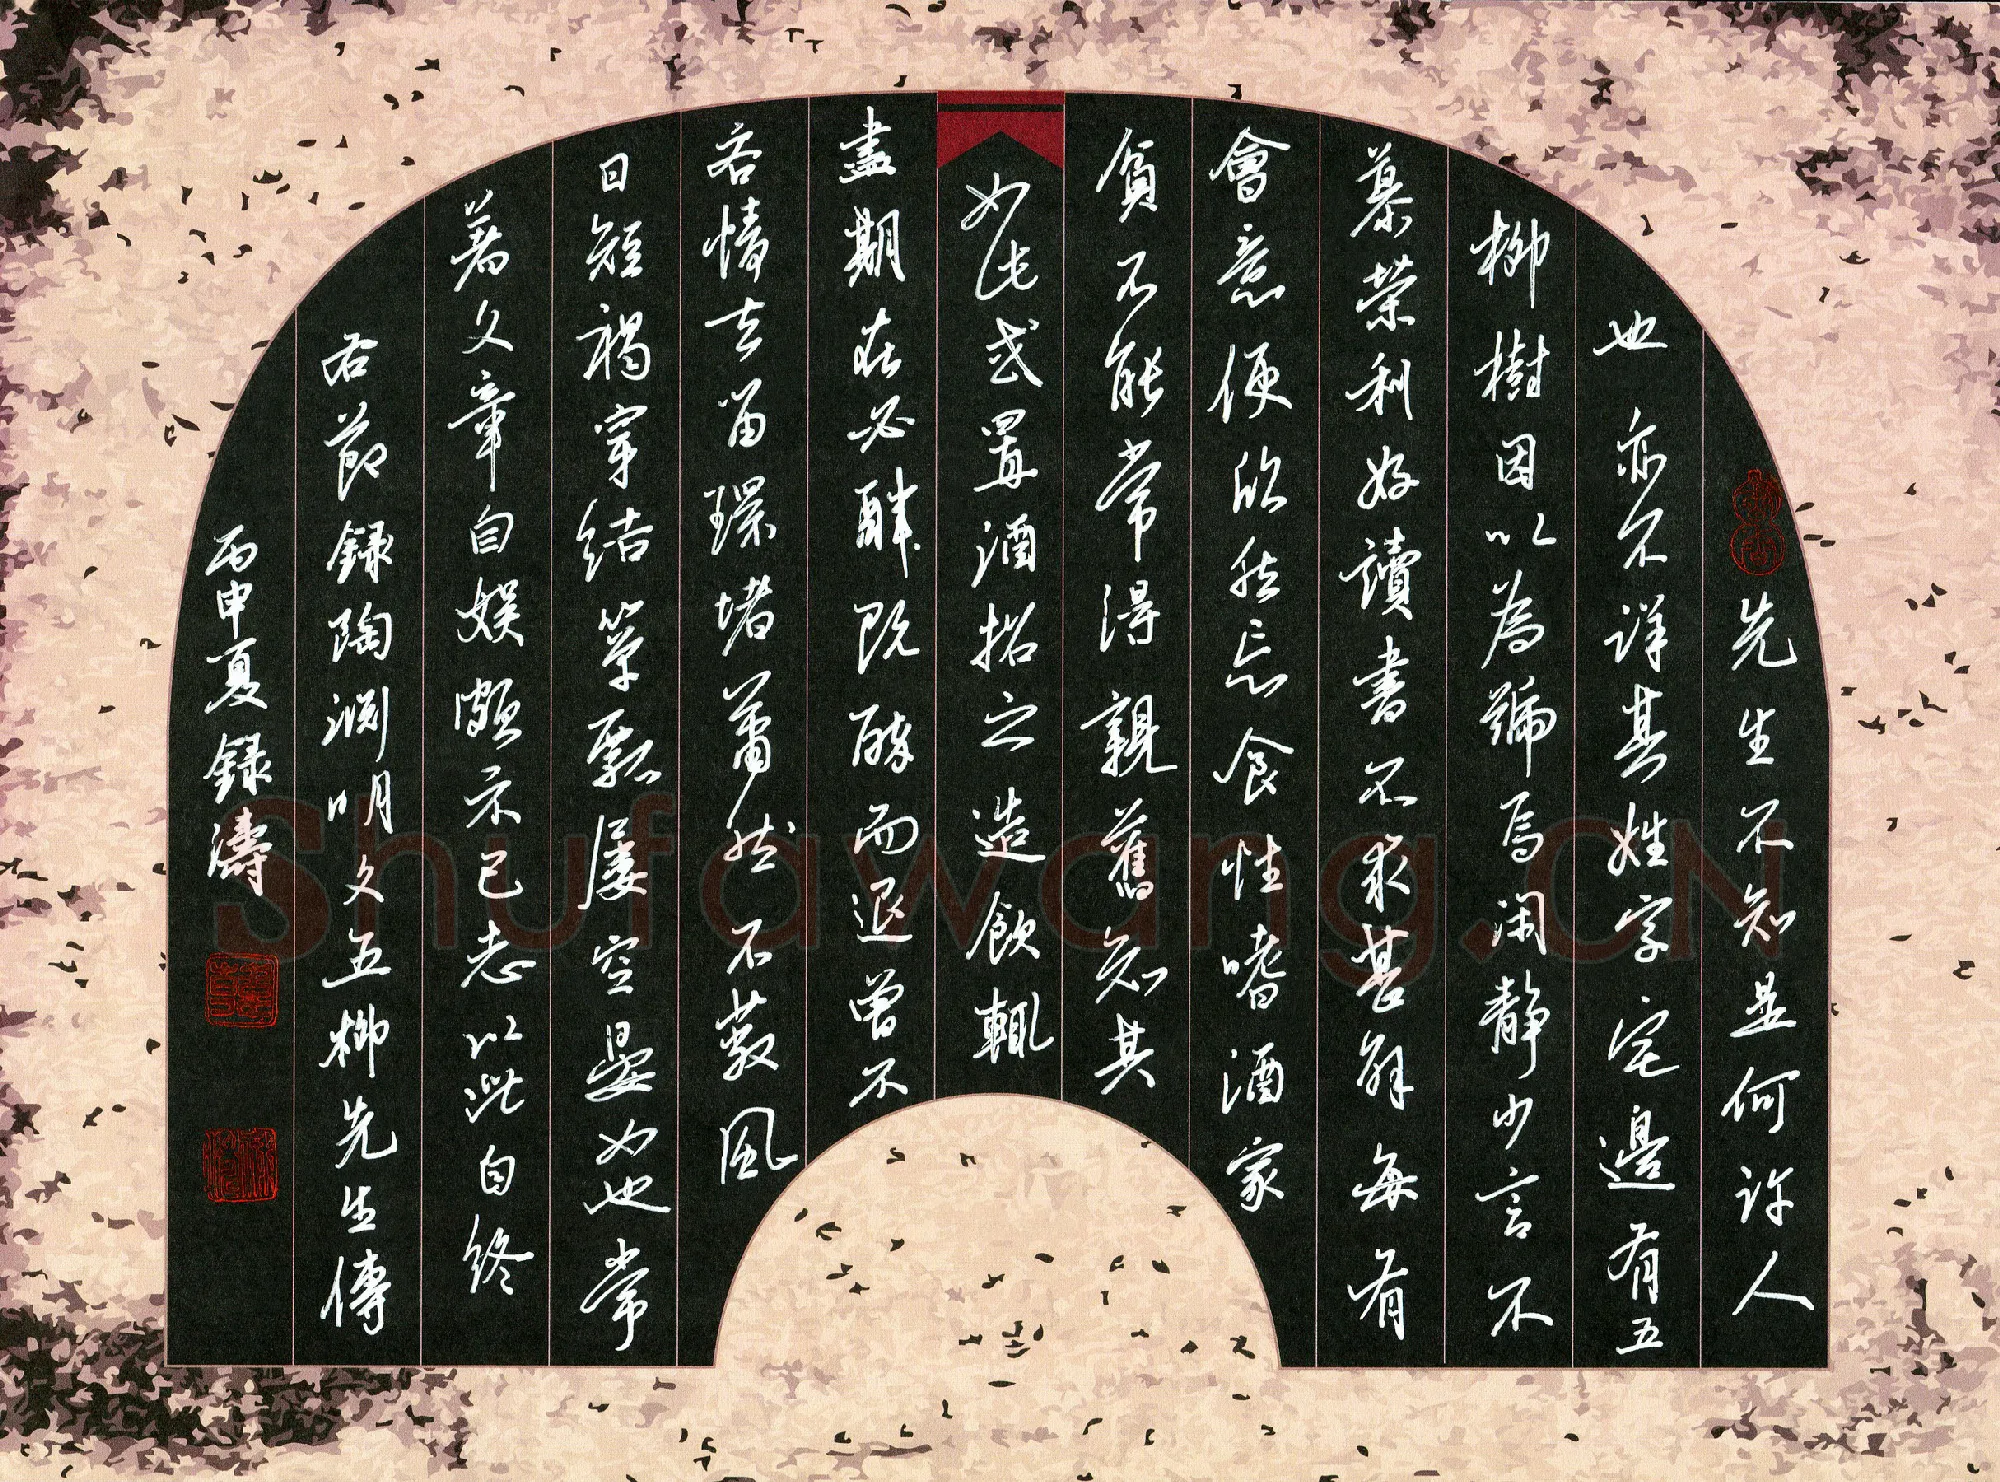 先生不知是何許人
也亦不詳其姓字宅邊有五
柳樹因以為號焉閑静少言不
慕榮利好讀書不求甚解每有
會意便欣然忘食性嗜酒家
貧不能常得親舊知其
如此或置酒招之造飲輒
盡期在必醉既醉而退曾不
吝情去留環堵蕭然不蔽風
日短褐穿結簞瓢屢空晏如也常
著文章自娱頗示己志以此自終
右節録陶淵明文五柳先生傳
丙申夏録濤
Shufawang.CN